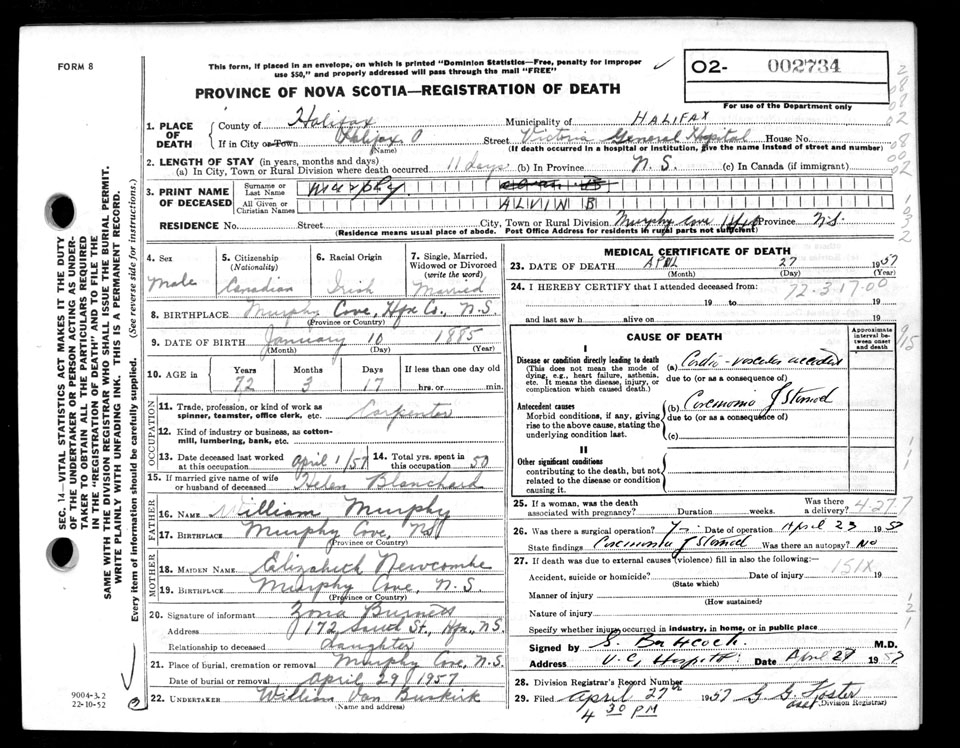 FORM 8
This form, if placed in an envelope, on which is printed "Dominion Statistics—Free, penalty for improper
use $50," and properly addressed will pass through the mail "FREE"
O2- 002734
PROVINCE OF NOVA SCOTIA—REGISTRATION OF DEATH
For use of the Department only
1. PLACE OF DEATH
County of Halifax Municipality of HALIFAX
If in City or Town Halifax (Name) Street Victoria General Hospital House No.
(If death occurred in a hospital or institution, give the name instead of street and number)
2. LENGTH OF STAY (in years, months and days)
(a) In City, Town or Rural Division where death occurred 11 days (b) In Province N. S. (c) In Canada (if immigrant)
3. PRINT NAME OF DECEASED
Surname or Last Name Murphy
All Given or Christian Names ALVIN B
RESIDENCE No. Street City, Town or Rural Division Murphy Cove Province N.S.
(Residence means usual place of abode. Post Office Address for residents in rural parts not sufficient)
4. Sex Male
5. Citizenship (Nationality) Canadian
6. Racial Origin Irish
7. Single, Married, Widowed or Divorced (write the word) Married
8. BIRTHPLACE Murphy Cove, Hfx Co., N.S.
(Province or Country)
9. DATE OF BIRTH January 10 1885
(Month) (Day) (Year)
10. AGE in Years Months Days If less than one day old
72 3 17 hrs. or min.
OCCUPATION
11. Trade, profession, or kind of work as spinner, teamster, office clerk, etc. Carpenter
12. Kind of industry or business, as cotton-mill, lumbering, bank, etc.
13. Date deceased last worked at this occupation April 1/57
14. Total years spent in this occupation 50
15. If married give name of wife or husband of deceased Helen Blanchard
FATHER
16. NAME William Murphy
17. BIRTHPLACE Murphy Cove, NS
(Province or Country)
MOTHER
18. MAIDEN NAME Elizabeth Newcombe
19. BIRTHPLACE Murphy Cove, N. S.
(Province or Country)
20. Signature of informant Zona Burnett
Address 172 St., Hfx, NS.
Relationship to deceased daughter
21. Place of burial, cremation or removal Murphy Cove, N.S.
Date of burial or removal April 29 1957
22. UNDERTAKER William Van Buskirk
(Name and address)
MEDICAL CERTIFICATE OF DEATH
23. DATE OF DEATH APRIL 27 1957
(Month) (Day) (Year)
24. I HEREBY CERTIFY that I attended deceased from:
72-3-17-00
19 to 19
and last saw h alive on 19
CAUSE OF DEATH
Approximate interval between onset and death
I
Disease or condition directly leading to death
(This does not mean the mode of dying, e.g., heart failure, asthenia, etc. It means the disease, injury, or complication which caused death.)
(a) Cardio-vascular accident
due to (or as a consequence of)
Antecedent causes
Morbid conditions, if any, giving rise to the above cause, stating the underlying condition last.
(b) Carcinoma of Stomach
due to (or as a consequence of)
(c)
II
Other significant conditions
contributing to the death, but not related to the disease or condition causing it.
25. If a woman, was the death associated with pregnancy? Duration weeks. Was there a delivery?
4-27 7
26. Was there a surgical operation? Yes Date of operation April 23 1957
State findings Carcinoma of Stomach Was there an autopsy? No
27. If death was due to external causes (violence) fill in also the following:
151X
Accident, suicide or homicide? Date of injury 19
(State which)
Manner of injury
(How sustained)
Nature of injury
Specify whether injury occurred in industry, in home, or in public place
Signed by M.D.
Address V. G. Hospital Date April 27 1957
28. Division Registrar's Record Number
29. Filed April 27th 1957 G. G. Foster
4 30 PM
asst (Division Registrar)
SEC. 14—VITAL STATISTICS ACT MAKES IT THE DUTY
OF THE UNDERTAKER OR PERSON ACTING AS UNDER-
TAKER TO OBTAIN ALL THE PARTICULARS REQUIRED
IN THE "REGISTRATION OF DEATH" AND TO FILE THE
SAME WITH THE DIVISION REGISTRAR WHO SHALL ISSUE THE BURIAL PERMIT.
WRITE PLAINLY WITH UNFADING INK. THIS IS A PERMANENT RECORD.
Every item of information should be carefully supplied. (See reverse side for instructions.)
9004-3.2
22-10-52